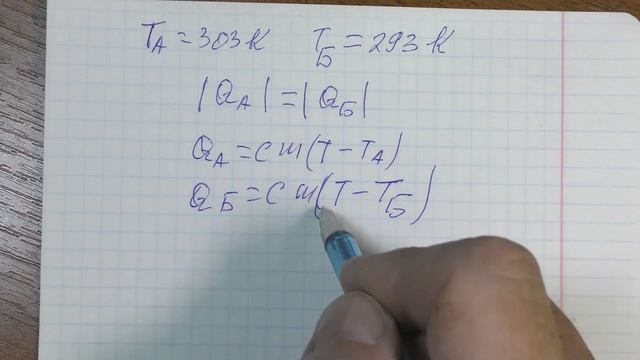 T_A = 303 К T_Б = 293 К
|Q_A| = |Q_Б|
Q_A = cm(T - T_A)
Q_Б = cm(T - T_Б)